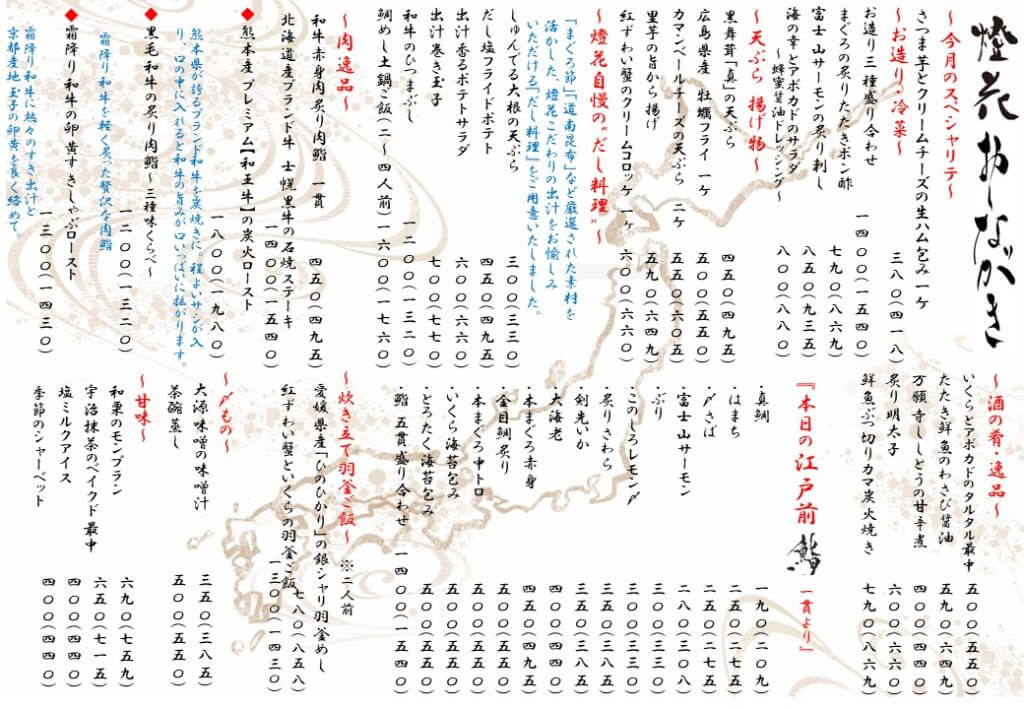 燈花おしながき
～今月のスペシャリテ～
さつま芋とクリームチーズの生ハム包み 一ケ 三八〇(四一八)
～お造り・冷菜～
お造り 三種盛り合わせ 一四〇〇(一五四〇)
まぐろの炙りたたきポン酢 七九〇(八六九)
富士山サーモンの炙り刺し 八五〇(九三五)
海の幸とアボカドのサラダ 八〇〇(八八〇)
～蜂蜜醤油ドレッシング～
～天ぷら 揚げ物～
黒舞茸「真」の天ぷら 四五〇(四九五)
広島県産 牡蠣フライ 一ケ 五〇〇(五五〇)
カマンベールチーズの天ぷら 二ケ 五五〇(六〇五)
里芋の旨から揚げ 五九〇(六四九)
紅ずわい蟹のクリームコロッケ 一ケ 六〇〇(六六〇)
～燈花自慢の"だし料理"～
「まぐろ節」「道南昆布」など厳選された素材を
活かした、燈花こだわりの出汁をお愉しみ
いただける「だし料理」をご用意いたしました。
しゅんでる大根の天ぷら 三〇〇(三三〇)
だし塩フライドポテト 四五〇(四九五)
出汁香るポテトサラダ 六〇〇(六六〇)
出汁巻き玉子 七〇〇(七七〇)
和牛のひつまぶし 一二〇〇(一三二〇)
鯛めし土鍋ご飯(二～四人前) 一六〇〇(一七六〇)
～肉 逸品～
和牛赤身肉炙り肉鮨 一貫 四五〇(四九五)
北海道産ブランド牛 士幌黒牛の石焼ステーキ 一四〇〇(一五四〇)
◆熊本産プレミアム【和王牛】の炭火ロースト 一八〇〇(一九八〇)
熊本県が誇るブランド和牛を炭焼きに。程よいサシが入
り、口の中に入れると和牛の旨みが口いっぱいに拡がります。
◆黒毛和牛の炙り肉鮨～三種味くらべ～ 一二〇〇(一三二〇)
霜降り和牛を軽く炙った贅沢な肉鮨
◆霜降り和牛の卵黄すきしゃぶロースト 一三〇〇(一四三〇)
霜降り和牛に熱々のすき出汁と
京都産地玉子の卵黄を良く絡めて
～酒の肴・逸品～
いくらとアボカドのタルタル最中 五〇〇(五五〇)
たたき鮮魚のわさび醤油 五九〇(六四九)
万願寺ししとうの甘辛煮 四〇〇(四四〇)
炙り明太子 六〇〇(六六〇)
鮮魚ぶつ切りカマ炭火焼き 七九〇(八六九)
『本日の江戸前鮨 一貫より』
・真鯛 一九〇(二〇九)
・はまち 二五〇(二七五)
・〆さば 二五〇(二七五)
・富士山サーモン 二八〇(三〇八)
・ぶり 三〇〇(三三〇)
・このしろレモン〆 三〇〇(三三〇)
・炙りさわら 三五〇(三八五)
・剣先いか 三五〇(三八五)
・大海老 四〇〇(四四〇)
・本まぐろ赤身 四五〇(四九五)
・金目鯛炙り 五〇〇(五五〇)
・本まぐろ中トロ 五〇〇(五五〇)
・いくら海苔包み 五〇〇(五五〇)
・とろたく海苔包み 五〇〇(五五〇)
・鮨 五貫盛り合わせ 一四〇〇(一五四〇)
～炊き立て羽釜ご飯～ ※二人前
愛媛県産「ひのひかり」の銀シャリ羽釜めし 七八〇(八五八)
紅ずわい蟹といくらの羽釜ご飯 一三〇〇(一四三〇)
～〆もの～
大源味噌の味噌汁 三五〇(三八五)
茶碗蒸し 五〇〇(五五〇)
～甘味～
和栗のモンブラン 六九〇(七五九)
宇治抹茶のベイクド最中 六五〇(七一五)
塩ミルクアイス 四〇〇(四四〇)
季節のシャーベット 四〇〇(四四〇)